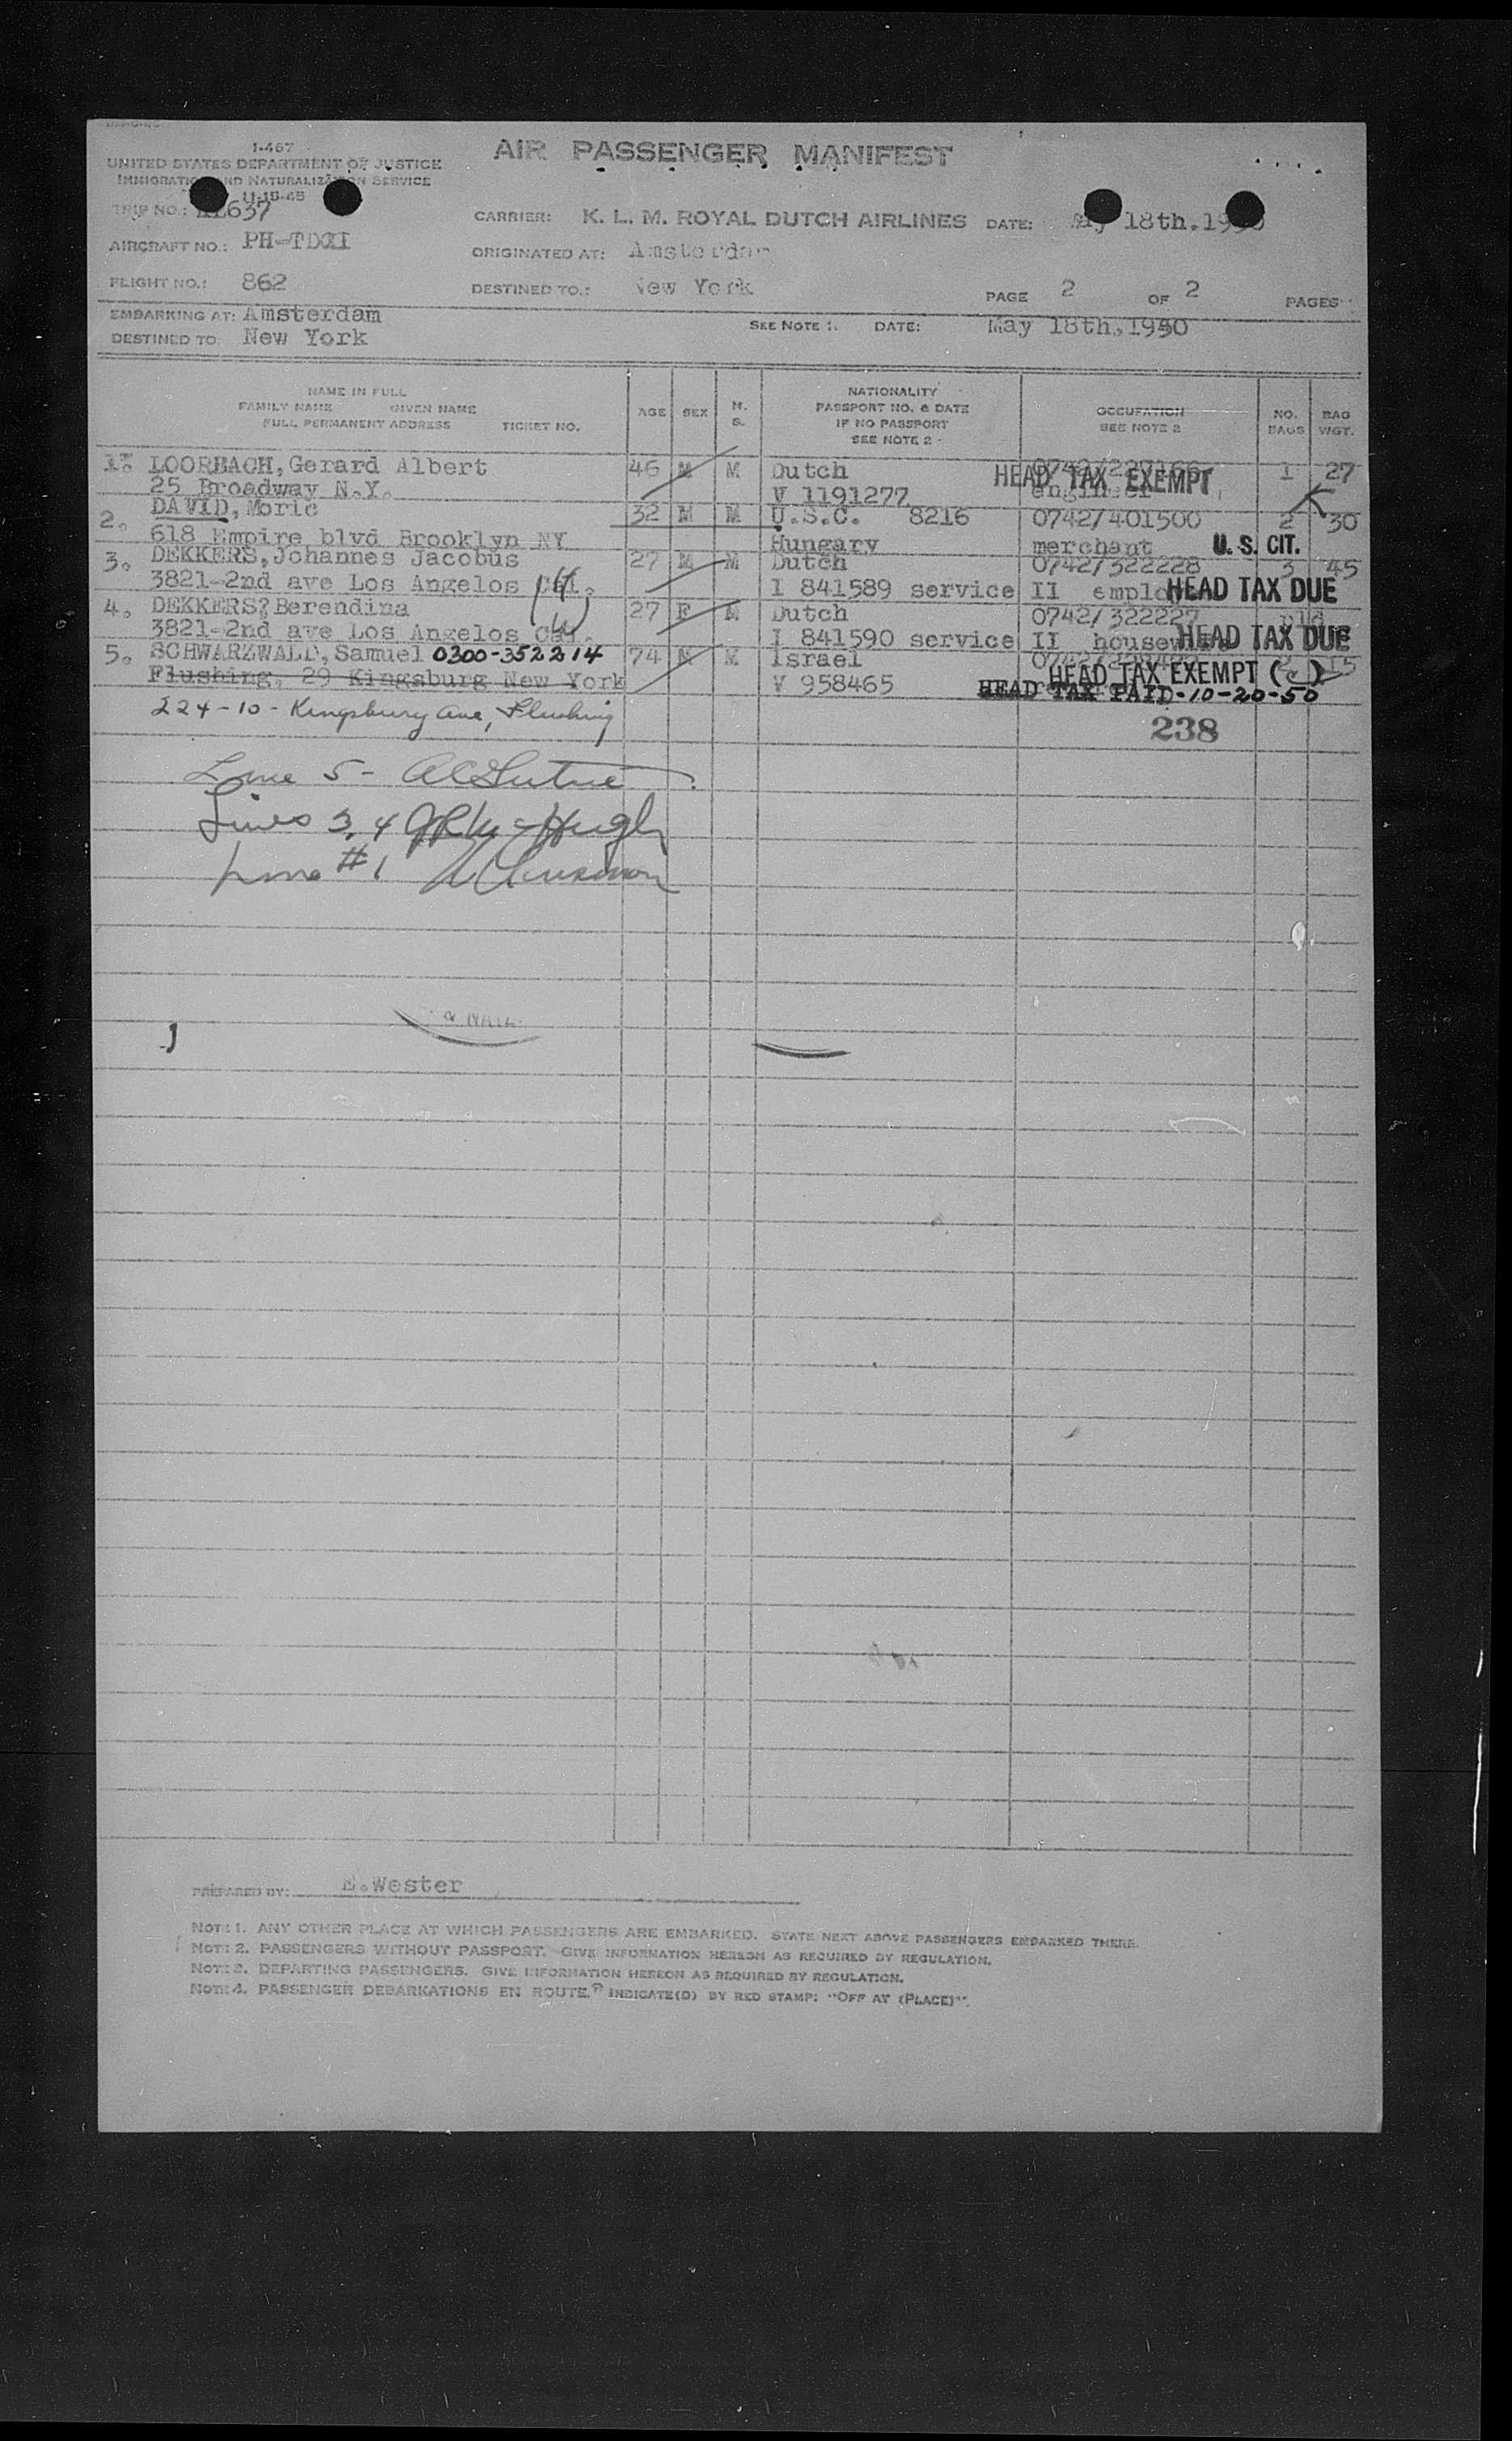 1-467
UNITED STATES DEPARTMENT OF JUSTICE
IMMIGRATION AND NATURALIZATION SERVICE
11-15-45
AIR PASSENGER MANIFEST
TRIP NO.: 637
CARRIER: K. L. M. ROYAL DUTCH AIRLINES DATE: May 18th.1950
AIRCRAFT NO.: PH-TD
ORIGINATED AT: Amsterdam
FLIGHT NO.: 862
DESTINED TO.: New York
PAGE 2 OF 2 PAGES
EMBARKING AT: Amsterdam
SEE NOTE 1. DATE: May 18th.1950
DESTINED TO New York
NAME IN FULL
FAMILY NAME GIVEN NAME
FULL PERMANENT ADDRESS TICKET NO.
AGE SEX M. S.
NATIONALITY
PASSPORT NO. & DATE
IF NO PASSPORT
SEE NOTE 2
OCCUPATION
SEE NOTE 2
NO. BAGS
BAG WGT.
1. LOORBACH, Gerard Albert 46 M M Dutch 0742/227166 1 27
HEAD TAX EXEMPT
25 Broadway N.Y. V 1191277 engineer
2. DAVID, Moric 32 M M U.S.C. 8216 0742/401500 2 30
618 Empire blvd Brooklyn NY Hungary merchant U. S. CIT.
3. DEKKERS, Johannes Jacobus 27 M M Dutch 0742/322228 3 45
3821-2nd ave Los Angelos Cal. I 841589 service II HEAD TAX DUE
4. DEKKERS, Berendina 27 F M Dutch 0742/322227 pld
3821-2nd ave Los Angelos Cal. I 841590 service II HEAD TAX DUE
5. SCHWARZWALD, Samuel 0300-352214 74 M M Israel 15
HEAD TAX EXEMPT (C)
Flushing, 29 Kingsburg New York V 958465
HEAD TAX PAID-10-20-50
224-10-Kingsbury Ave, Flushing
238
Line 5-
Lines 3, 4
Line #1
PREPARED BY: E.Wester
NOTE 1. ANY OTHER PLACE AT WHICH PASSENGERS ARE EMBARKED. STATE NEXT ABOVE PASSENGERS EMBARKED THERE.
NOTE 2. PASSENGERS WITHOUT PASSPORT. GIVE INFORMATION HEREON AS REQUIRED BY REGULATION.
NOTE 3. DEPARTING PASSENGERS. GIVE INFORMATION HEREON AS REQUIRED BY REGULATION.
NOTE 4. PASSENGER DEBARKATIONS EN ROUTE. INDICATE(D) BY RED STAMP: "OFF AT (PLACE)".